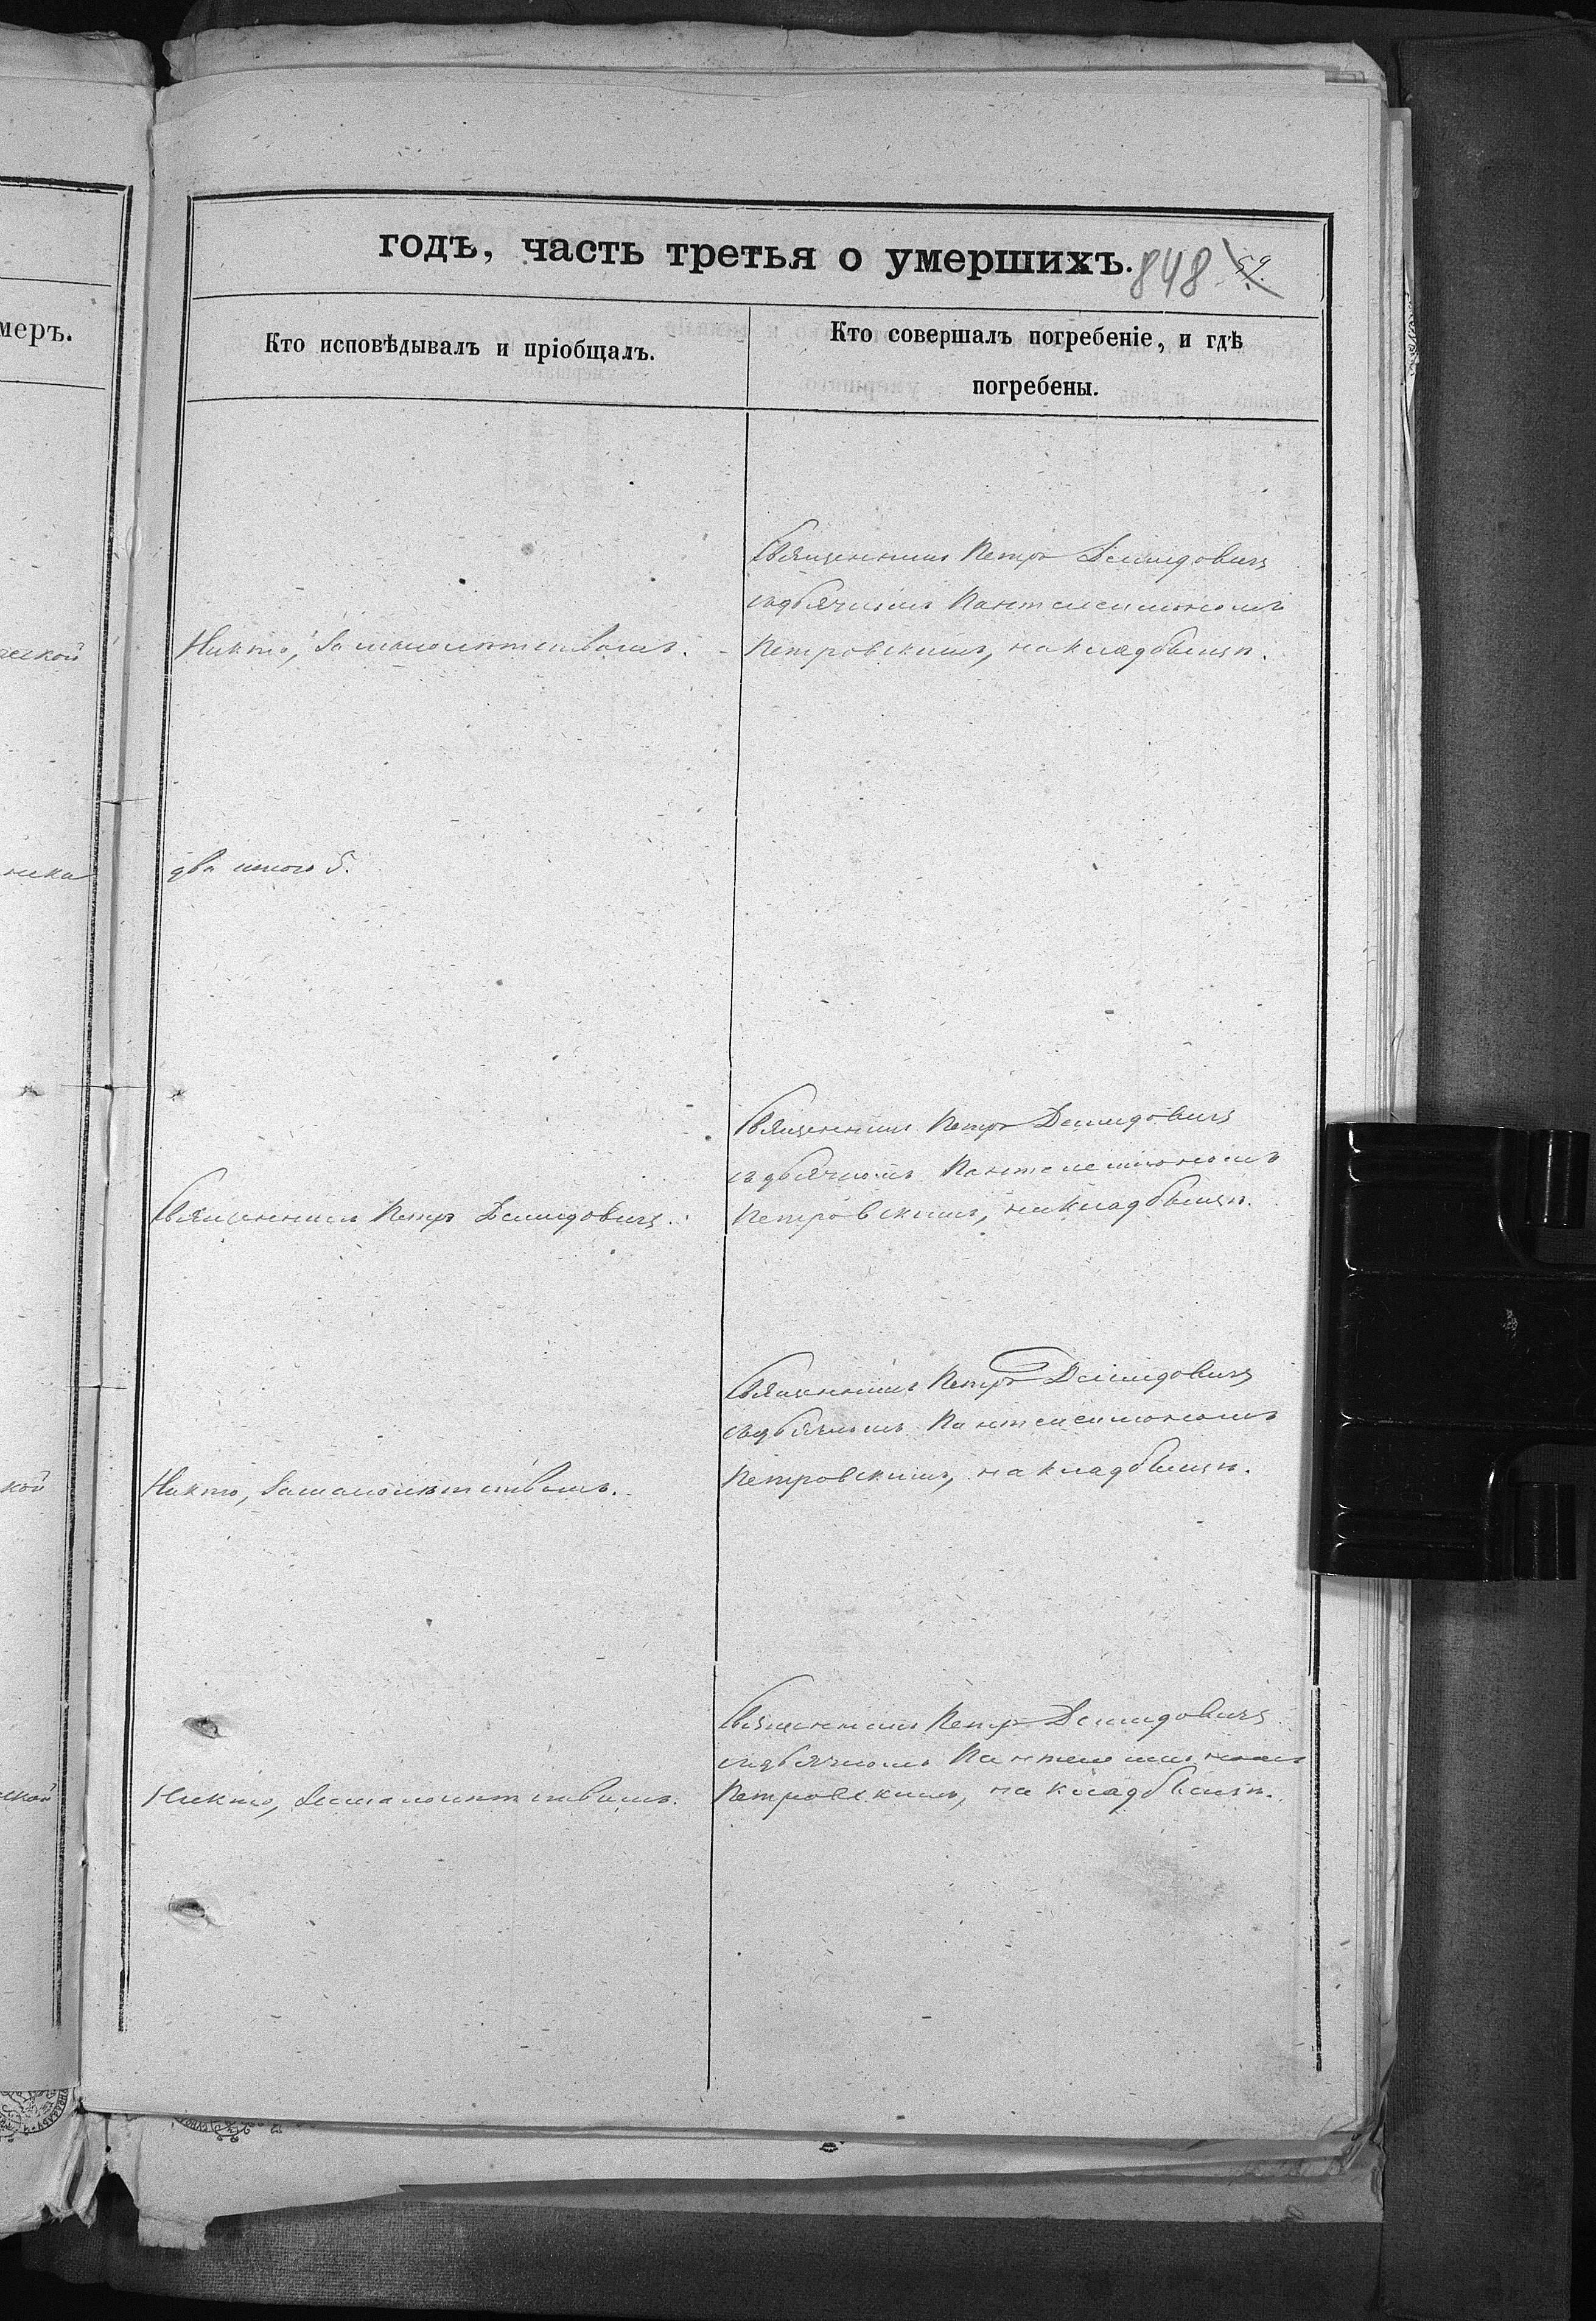 годъ, часть третья о умершихъ.
848 59.
меръ.
Кто исповѣдывалъ и пріобщалъ.
Кто совершалъ погребеніе, и гдѣ
погребены.
Священникъ Петръ Демидовичъ
съ дьячкомъ Пантелеимономъ
Никто, за малолѣтствомъ.
Петровскимъ, на кладбищѣ.
ника
два итого 5.
Священникъ Петръ Демидовичъ
съ дьячкомъ Пантелеимономъ
Священникъ Петръ Демидовичъ.
Петровскимъ, на кладбищѣ.
Священникъ Петръ Демидовичъ
съ дьячкомъ Пантелеимономъ
кой
Никто, за малолѣтствомъ.
Петровскимъ, на кладбищѣ.
Священникъ Петръ Демидовичъ
съ дьячкомъ Пантелеимономъ
ской
Никто, за малолѣтствомъ.
Петровскимъ, на кладбищѣ.